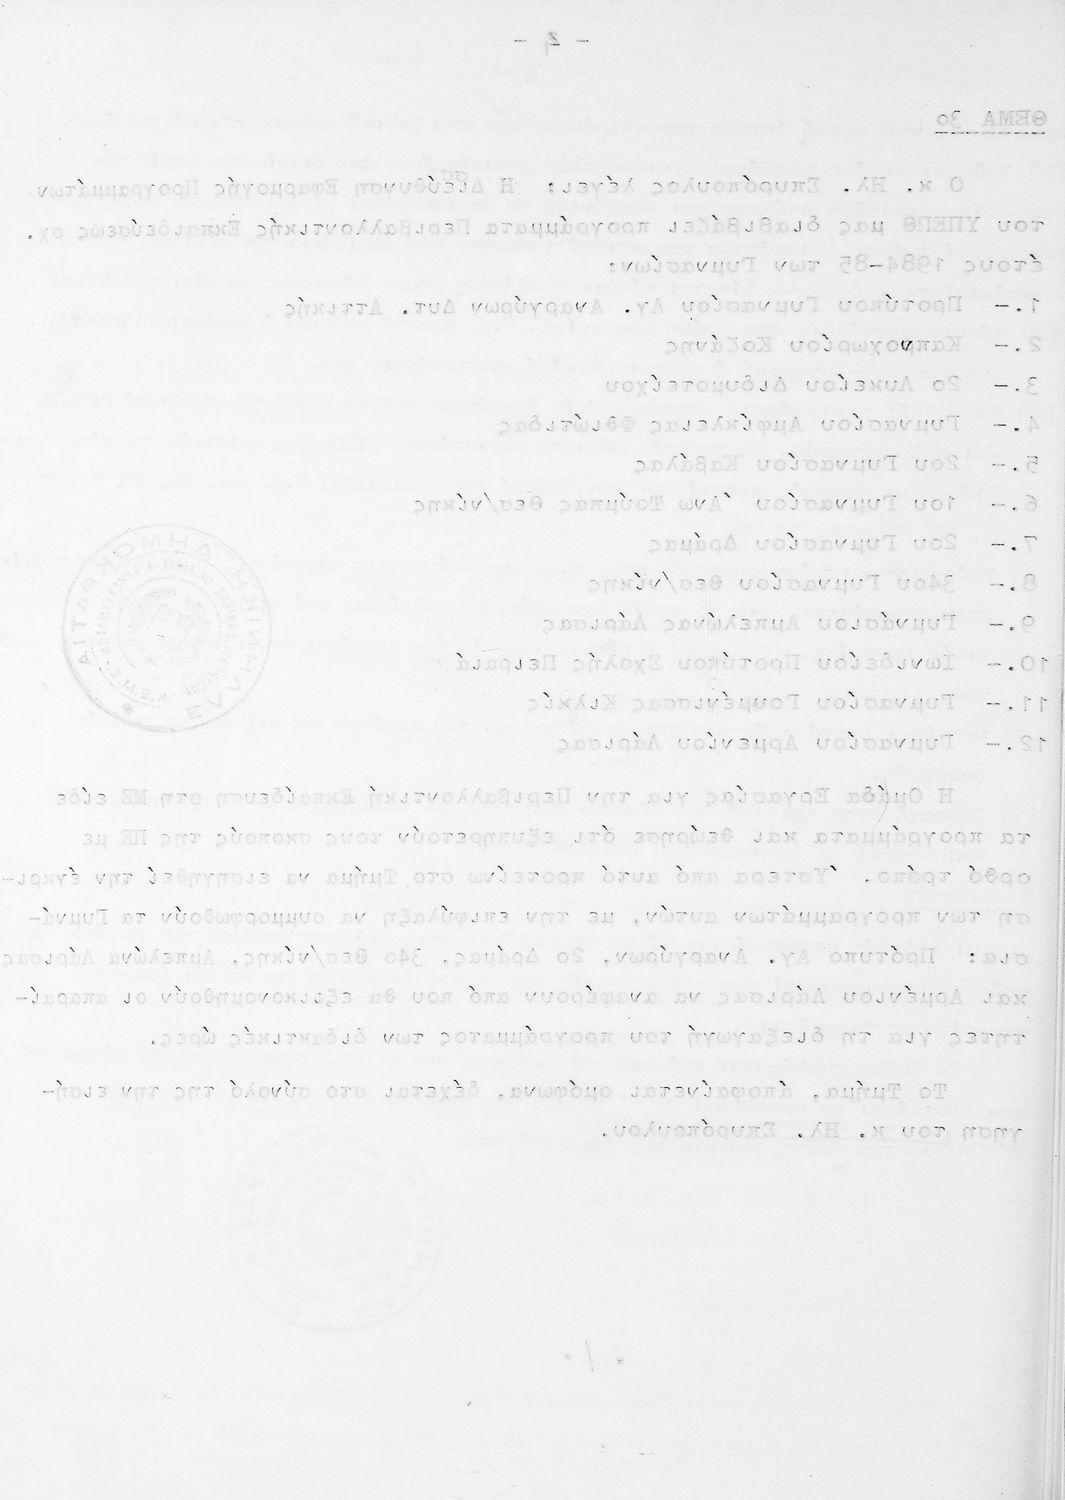 - 2 -
ΘΕΜΑ 3ο
Ο κ. Ηλ. Σπυρόπουλος λέγει: Η Διεύθυνση Εφαρμογής Προγραμμάτων
του ΥΠΕΠΘ μας διαβιβάζει προγράμματα Περιβαλλοντικής Εκπαιδεύσεως σχ.
έτους 1984-85 των Γυμνασίων:
1.- Προτύπου Γυμνασίου Αγ. Αναργύρων Δυτ. Αττικής
2.- Καπνοχωρίου Κοζάνης
3.- 2ο Λυκείου Διδυμοτείχου
4.- Γυμνασίου Αμφίκλειας Φθιώτιδας
5.- 2ου Γυμνασίου Καβάλας
6.- 1ου Γυμνασίου Άνω Τούμπας Θεσ/νίκης
7.- 2ου Γυμνασίου Δράμας
8.- 34ου Γυμνασίου Θεσ/νίκης
9.- Γυμνάσιου Αμπελώνας Λάρισας
10.- Ιωνιδείου Προτύπου Σχολής Πειραιά
11.- Γυμνασίου Γουμένισσας Κιλκίς
12.- Γυμνασίου Αρμενίου Λάρισας
Η Ομάδα Εργασίας για την Περιβαλλοντική Εκπαίδευση στη ΜΕ είδε
τα προγράμματα και θεώρησε ότι εξυπηρετούν τους σκοπούς της ΠΕ με
ορθό τρόπο. Ύστερα από αυτό προτείνω στο Τμήμα να εισηγηθεί την έγκρι-
ση των προγραμμάτων αυτών, με την επιφύλαξη να συμμορφωθούν τα Γυμνά-
σια: Πρότυπο Αγ. Αναργύρων, 2ο Δράμας, 34ο Θεσ/νίκης, Αμπελώνα Λάρισας
και Αρμένιου Λάρισας να αναφέρουν από που θα εξοικονομηθούν οι απαραί-
τητες για τη διεξαγωγή του προγράμματος των διδακτικές ώρες.
Το Τμήμα, άποφαίνεται ομόφωνα, δέχεται στο σύνολό της την εισή-
γηση του κ. Ηλ. Σπυρόπουλου.
ΕΛΛΗΝΙΚΗ ΔΗΜΟΚΡΑΤΙΑ
Κ.Ε.Μ.Ε.
./.